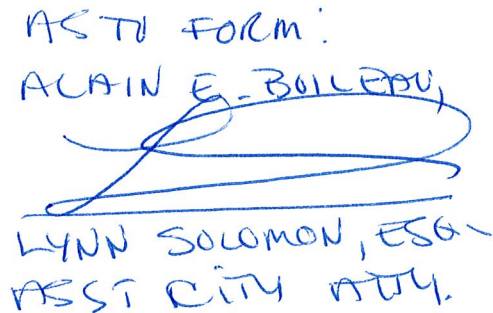 AS TO FORM:
ALAIN E. BOILEAU,
LYNN SOLOMON, ESQ.
ASST CITY ATTY.